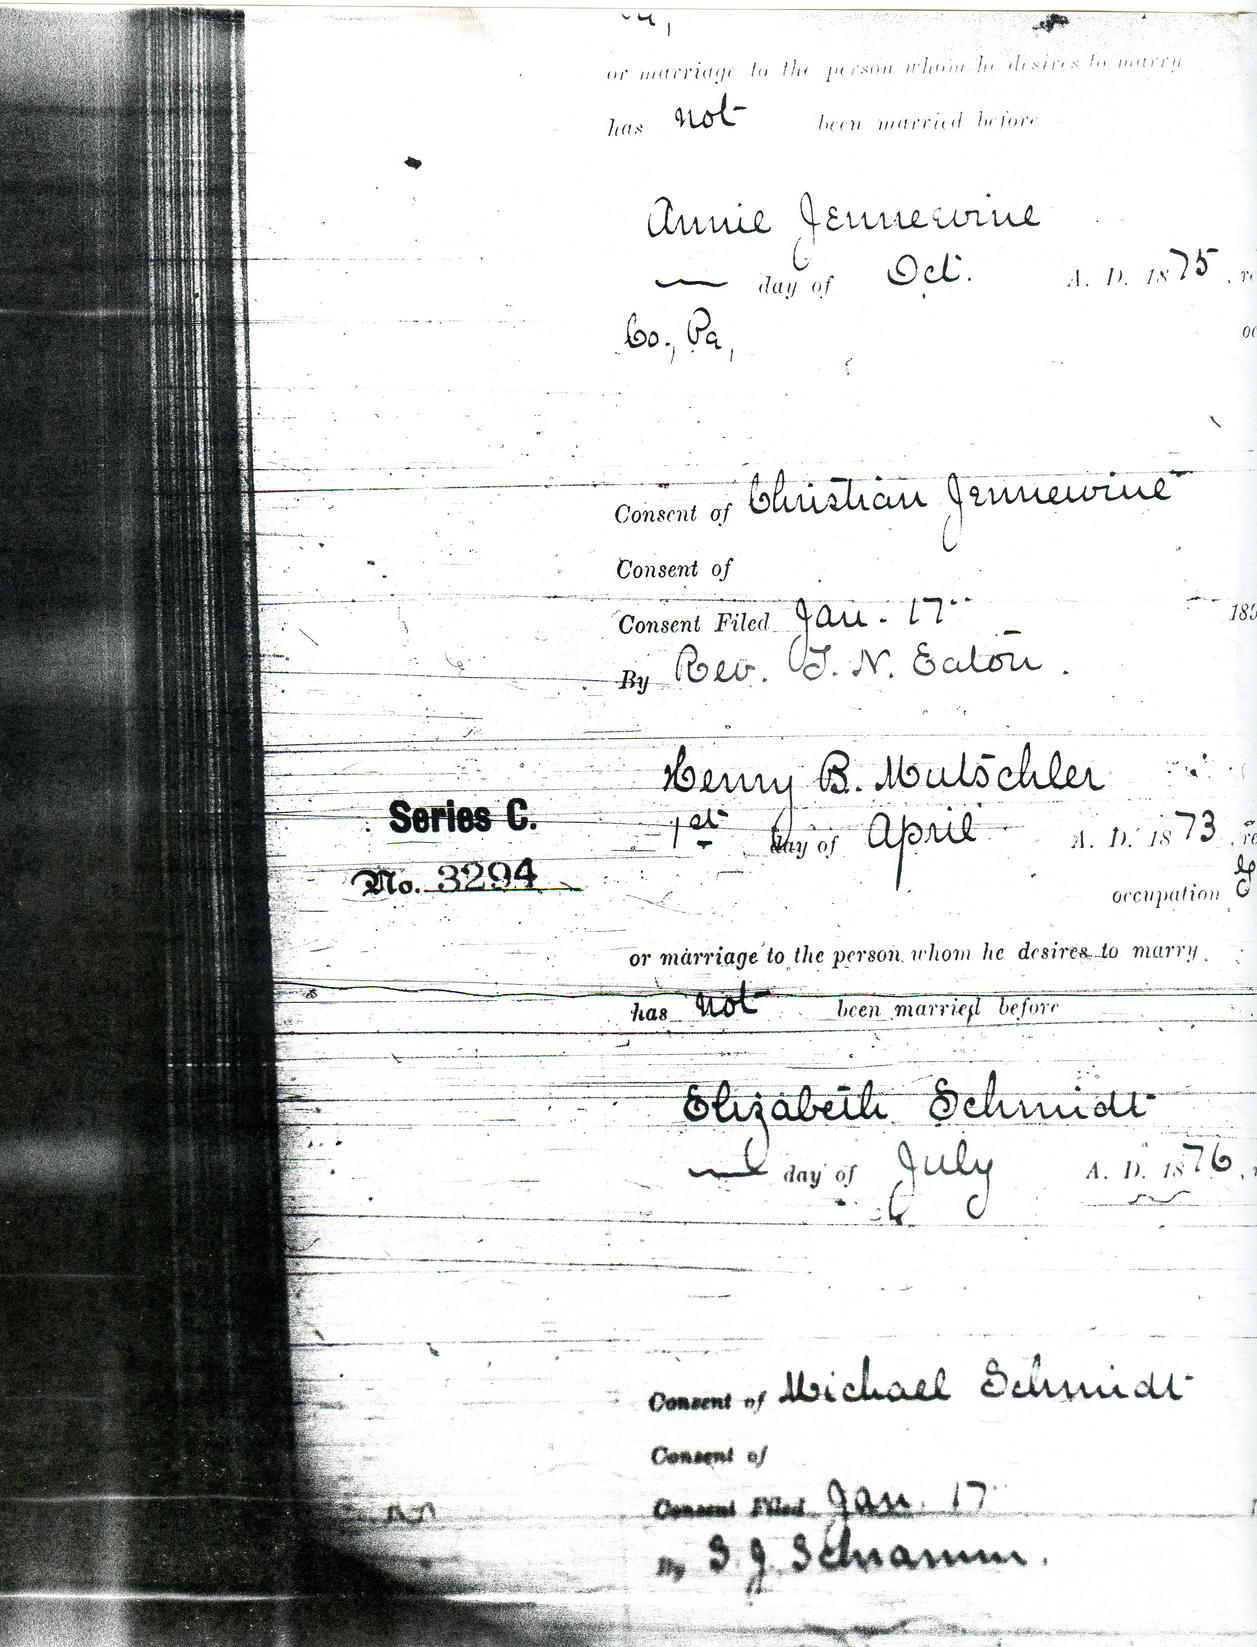 or marriage to the person whom he desires to marry
has not been married before
Annie Jennewine
day of Oct. A. D. 1875, re
Co., Pa,
oc
Consent of Christian Jennewine
Consent of
Consent Filed Jan. 17 189
By Rev. T. N. Eaton.
Henry B. Mutschler
Series C.
1st day of April A. D. 1873, re
No. 3294
occupation
or marriage to the person whom he desires to marry.
has not been married before
Elizabeth Schmidt
day of July A. D. 1876,
Consent of Michael Schmidt
Consent of
Consent Filed Jan. 17
By S. J. Schramm.